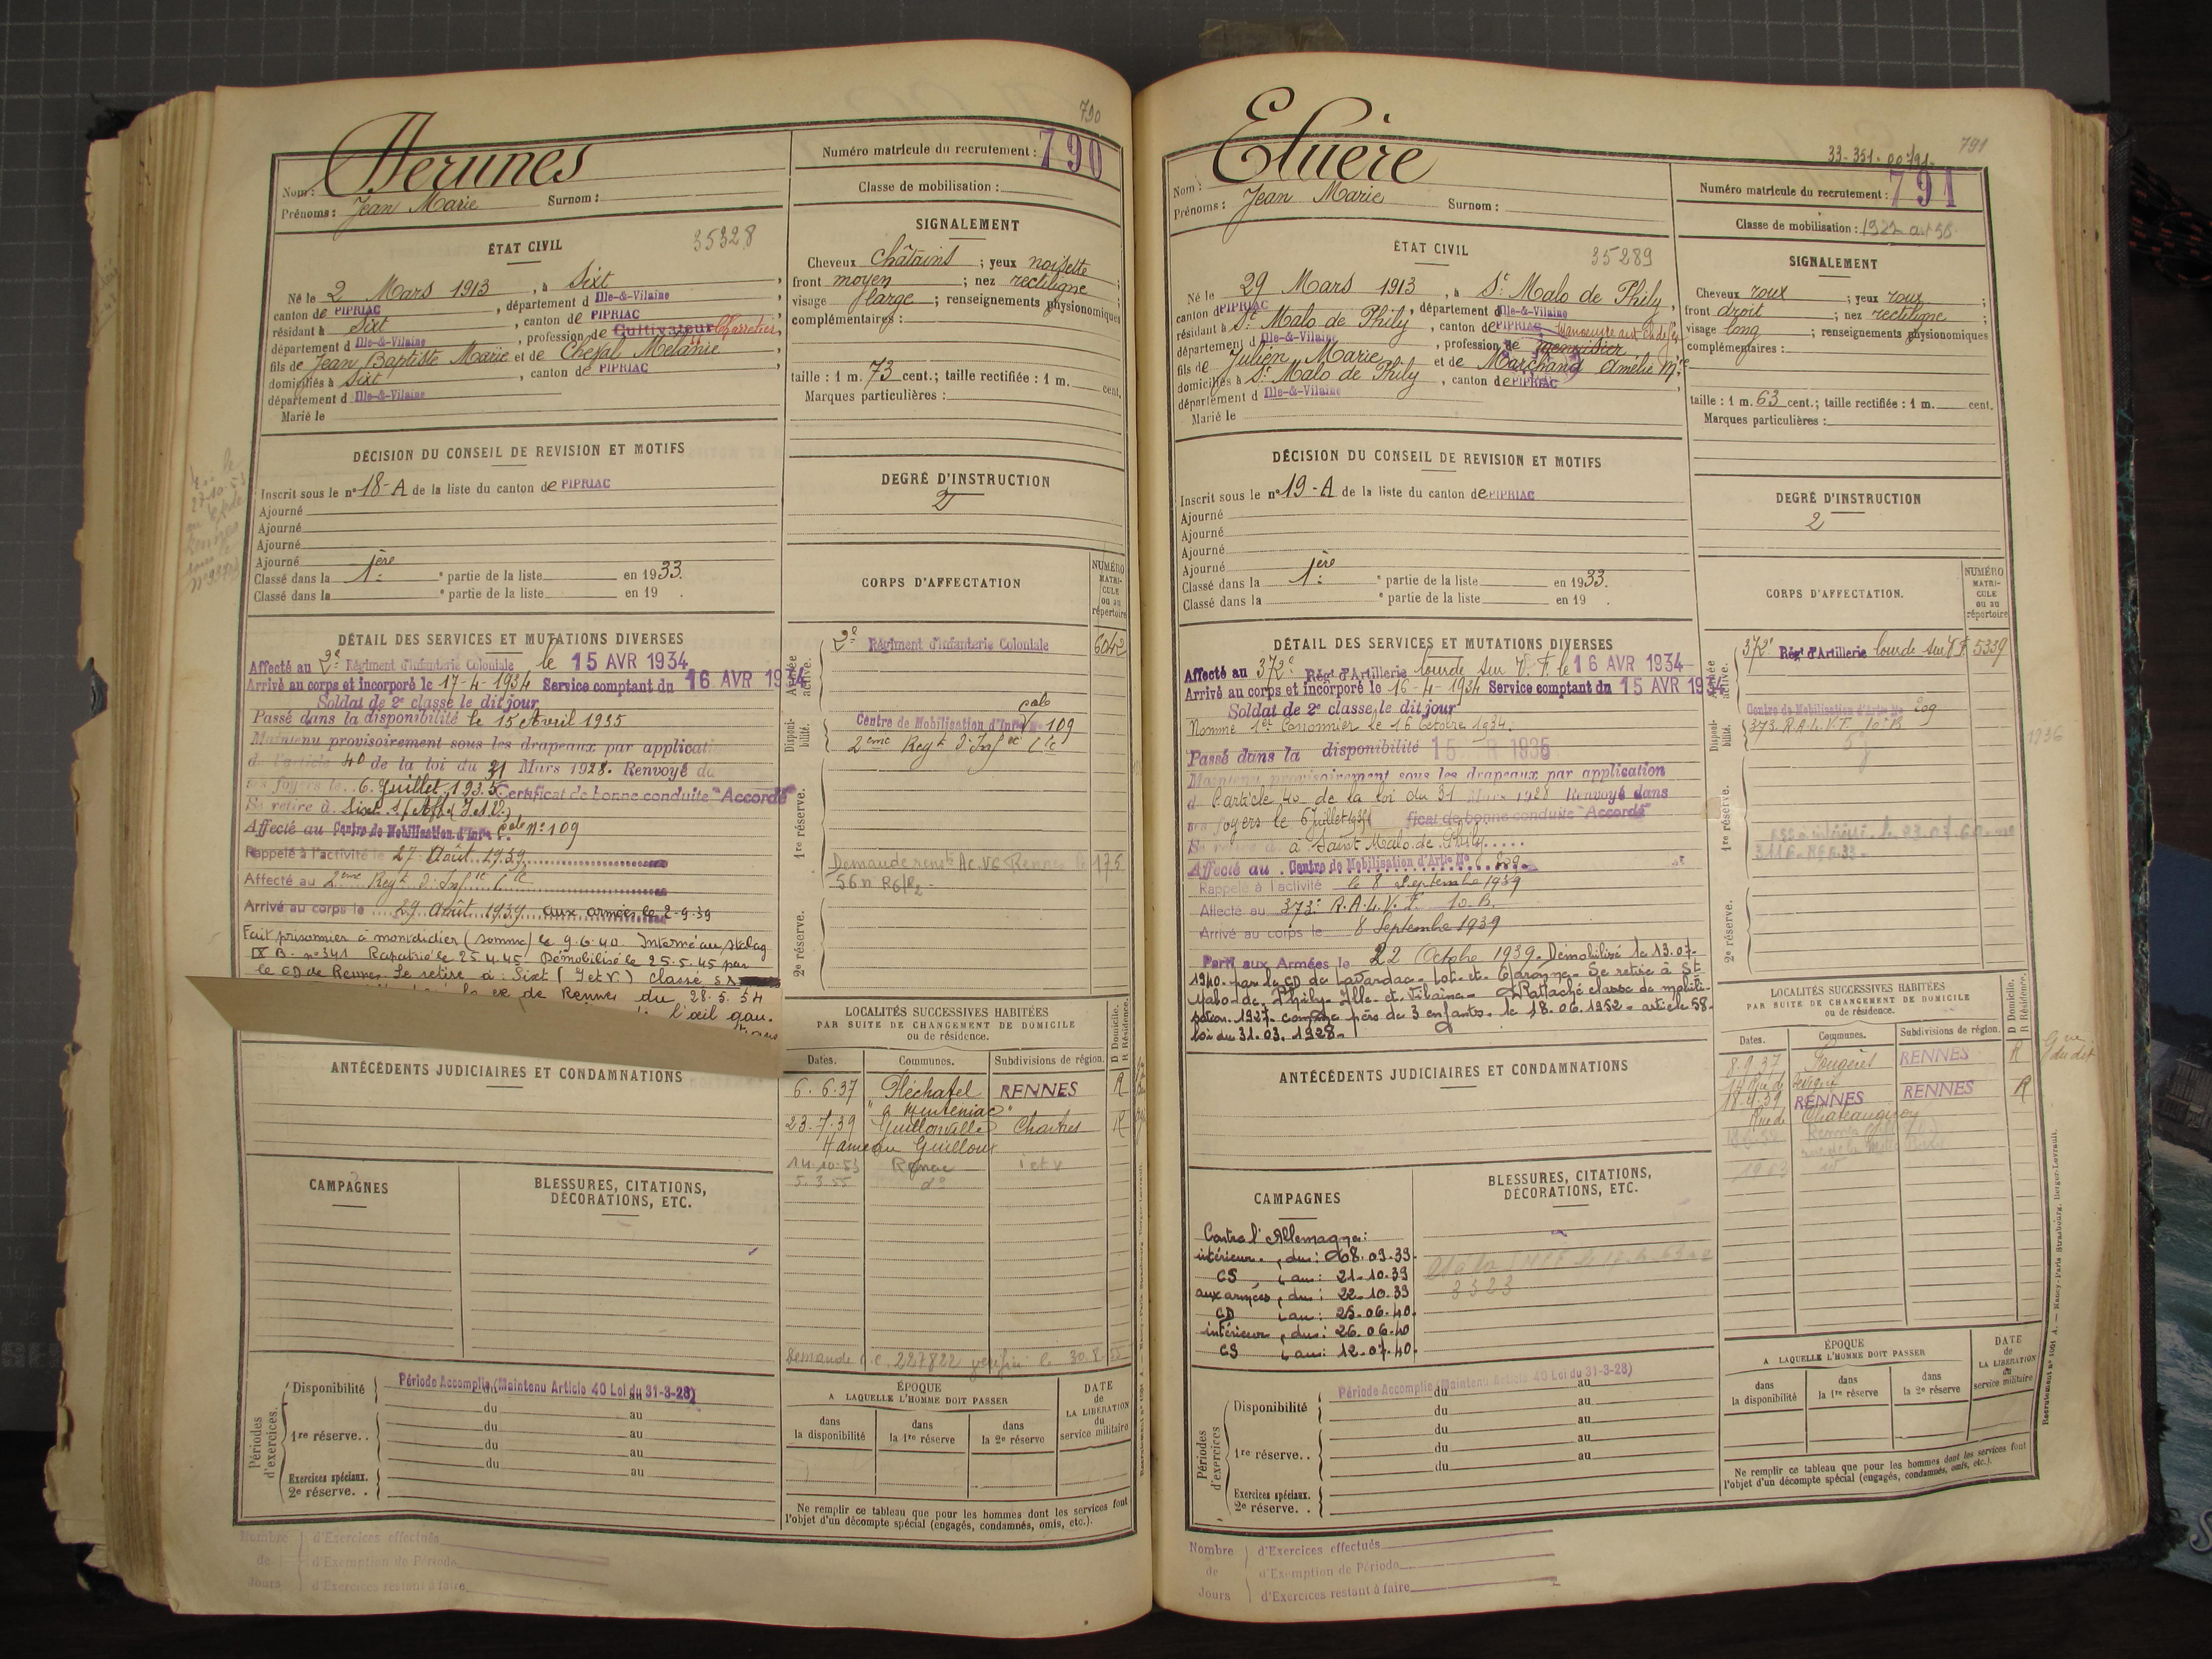 790
Nom : Herunes
Prénoms : Jean Marie Surnom :
Numéro matricule du recrutement : 790
Classe de mobilisation :
ÉTAT CIVIL
35328
Né le 2 Mars 1913, à Sixt,
canton de PIPRIAC, département d Ille-&-Vilaine
résidant à Sixt, canton de PIPRIAC,
département d Ille-&-Vilaine, profession de Cultivateur Charretier,
fils de Jean Baptiste Marie et de Cheval Mélanie,
domiciliés à Sixt, canton de PIPRIAC,
département d Ille-&-Vilaine
Marié le
SIGNALEMENT
Cheveux châtains ; yeux noisette ;
front moyen ; nez rectiligne ;
visage large ; renseignements physionomiques
complémentaires :
taille : 1 m. 73 cent.; taille rectifiée : 1 m. cent.
Marques particulières :
DÉCISION DU CONSEIL DE REVISION ET MOTIFS
Inscrit sous le n° 18-A de la liste du canton de PIPRIAC
Ajourné
Ajourné
Ajourné
Ajourné
Classé dans la 1ère partie de la liste en 1933.
Classé dans la e partie de la liste en 19 .
DEGRÉ D'INSTRUCTION
2
DÉTAIL DES SERVICES ET MUTATIONS DIVERSES
Affecté au 2e Régiment d'Infanterie Coloniale le 15 AVR 1934
Arrivé au corps et incorporé le 17-4-1934 Service comptant du 16 AVR 1934
Soldat de 2e classe le dit jour
Passé dans la disponibilité le 15 Avril 1935
Maintenu provisoirement sous les drapeaux par applicati
de l'article 40 de la loi du 31 Mars 1928. Renvoyé da
ses foyers le 6 Juillet 1935 Certificat de bonne conduite "Accordé"
Se retire à Sixt s/ Aff (I et V)
Affecté au Centre de Mobilisation d'Infie Cale n° 109
Rappelé à l'activité le 27 Août 1939
Affecté au 2eme Regt d'Infie Cle
Arrivé au corps le 29 Août 1939 aux armées le 2-9-39
Fait prisonnier à montdidier (somme) le 9.6.40. Interné au stalag
IX B. n° 341 Rapatrié le 25.4.45. Démobilisé le 25.5.45 par
le CD de Rennes. Se retire à : Sixt (I et V.) Classé
de Rennes du 28.5.54
l'œil gau.
CORPS D'AFFECTATION
NUMÉRO MATRICULE ou au répertoire
Armée active.
2e Régiment d'Infanterie Coloniale 6042
Disponibilité.
Centre de Mobilisation d'Infie Cale N° 109
2eme Regt d'Infie Cle
1re réserve.
56 n° R6/R2
2e réserve.
LOCALITÉS SUCCESSIVES HABITÉES
PAR SUITE DE CHANGEMENT DE DOMICILE
ou de résidence.
D Domicile. R Résidence.
Dates. Communes. Subdivisions de région.
6.6.37 Pléchatel RENNES R
23-7-39 Guillonville Chartres R
Hameau Guilloux
14-10-53 Renac I et V
5.3.55 do
ANTÉCÉDENTS JUDICIAIRES ET CONDAMNATIONS
CAMPAGNES
BLESSURES, CITATIONS, DÉCORATIONS, ETC.
Périodes d'exercices.
Disponibilité Période Accomplie (Maintenu Article 40 Loi du 31-3-28)
du au
1re réserve. . du au
du au
du au
Exercices spéciaux.
2e réserve. .
ÉPOQUE
A LAQUELLE L'HOMME DOIT PASSER
dans la disponibilité
dans la 1re réserve
dans la 2e réserve
DATE de LA LIBÉRATION du service militaire
Ne remplir ce tableau que pour les hommes dont les services font
l'objet d'un décompte spécial (engagés, condamnés, omis, etc.).
Nombre de Jours
d'Exercices effectués
d'Exemption de Période
d'Exercices restant à faire
791
33-351-00791-
Nom : Eluère
Prénoms : Jean Marie Surnom :
Numéro matricule du recrutement : 791
Classe de mobilisation :
ÉTAT CIVIL
35289
Né le 29 Mars 1913, à St Malo de Phily,
canton de PIPRIAC, département d Ille-&-Vilaine
résidant à St Malo de Phily, canton de PIPRIAC,
département d Ille-&-Vilaine, profession de menuisier
fils de Julien Marie et de Marchand Amélie Mie
domiciliés à St Malo de Phily, canton de PIPRIAC
département d Ille-&-Vilaine
Marié le
SIGNALEMENT
Cheveux roux ; yeux roux ;
front droit ; nez rectiligne ;
visage long ; renseignements physionomiques
complémentaires :
taille : 1 m. 63 cent.; taille rectifiée : 1 m. cent.
Marques particulières :
DÉCISION DU CONSEIL DE REVISION ET MOTIFS
Inscrit sous le n° 19-A de la liste du canton de PIPRIAC
Ajourné
Ajourné
Ajourné
Ajourné
Classé dans la 1ère partie de la liste en 1933.
Classé dans la e partie de la liste en 19 .
DEGRÉ D'INSTRUCTION
2
DÉTAIL DES SERVICES ET MUTATIONS DIVERSES
Affecté au 372e Régt d'Artillerie lourde sur V.F. le 16 AVR 1934
Arrivé au corps et incorporé le 16-4-1934 Service comptant du 15 AVR 1934
Soldat de 2e classe le dit jour
Nommé 1er Canonnier le 16 Octobre 1934.
Passé dans la disponibilité 15 1935
Maintenu provisoirement sous les drapeaux par application
de l'article 40 de la loi du 31 Mars 1928 Renvoyé dans
ses foyers le 6 Juillet 1935 ficat de bonne conduite "Accordé"
Se retire à Saint Malo de Phily
Affecté au Centre de Mobilisation d'Artie N° 209
Rappelé à l'activité le 8 Septembre 1939
Affecté au 373e R.A.L.V.F. 10e B.
Arrivé au corps le 8 Septembre 1939
Parti aux Armées le 22 Octobre 1939. Démobilisé le 13.07-
1940 par le CD de Lavardac - Lot-et-Garonne - Se retire à St
Malo-de-Phily - Ille-et-Vilaine - Rattaché classe de mobili-
sation 1927 comme père de 3 enfants - le 18.06.1952 - article 58.
loi du 31.03.1928.
CORPS D'AFFECTATION.
NUMÉRO MATRICULE ou au répertoire
Armée active.
372e Régt d'Artillerie lourde sur VF 5339
Disponibilité.
Centre de Mobilisation d'Artie No 209
373 R.A.L.V.F. 10e B
1re réserve.
2e réserve.
1936
LOCALITÉS SUCCESSIVES HABITÉES
PAR SUITE DE CHANGEMENT DE DOMICILE
ou de résidence.
D Domicile. R Résidence.
Dates. Communes. Subdivisions de région.
8.9.37 Fougères RENNES R
RENNES RENNES R
Rue de Chateaugiron
1963
ANTÉCÉDENTS JUDICIAIRES ET CONDAMNATIONS
CAMPAGNES
Contre l'Allemagne :
intérieur, du : 08.09.39.
CS, au : 21-10-39
aux armées, du : 22.10.39
CD au : 25.06.40.
intérieur, du : 26.06.40
CS au : 12.07.40.
BLESSURES, CITATIONS, DÉCORATIONS, ETC.
3523
Périodes d'exercices
Disponibilité Période Accomplie (Maintenu Article 40 Loi du 31-3-28)
du au
du au
1re réserve. . du au
du au
du au
Exercices spéciaux.
2e réserve. .
ÉPOQUE
A LAQUELLE L'HOMME DOIT PASSER
dans la disponibilité
dans la 1re réserve
dans la 2e réserve
DATE de LA LIBÉRATION du service militaire
Ne remplir ce tableau que pour les hommes dont les services font
l'objet d'un décompte spécial (engagés, condamnés, omis, etc.).
Recrutement n° 1091 A. — Nancy-Paris-Strasbourg, Berger-Levrault.
Nombre de Jours
d'Exercices effectués
d'Exemption de Période
d'Exercices restant à faire